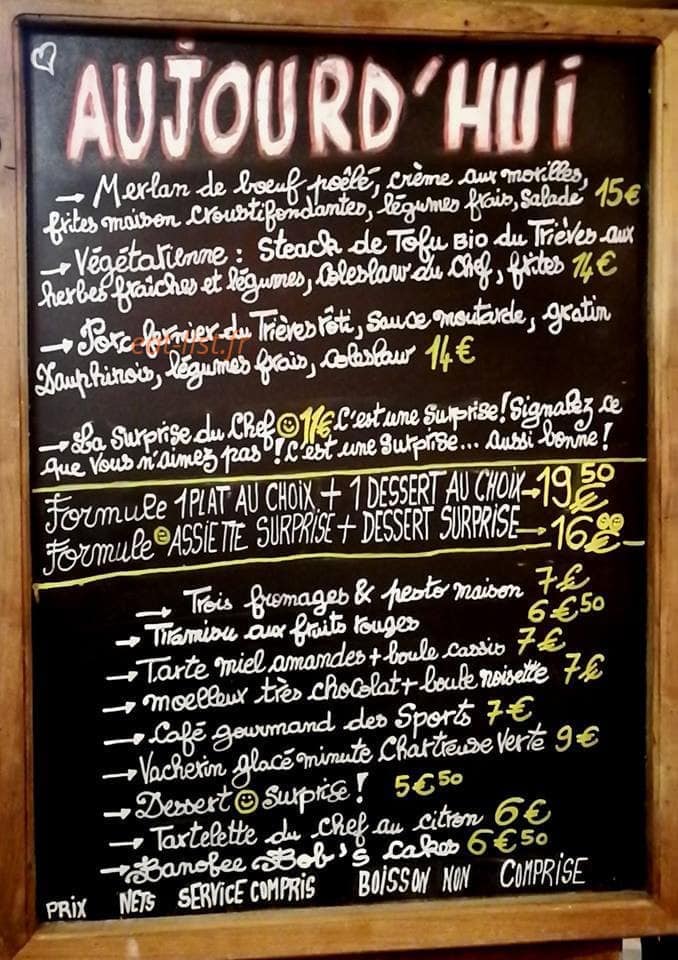 AUJOURD'HUI
→ Merlan de bœuf poêlé, crème aux morilles,
frites maison croustifondantes, légumes frais, salade 15€
→ Végétarienne : Steack de Tofu Bio du Trièves aux
herbes fraiches et légumes, Coleslaw du Chef, frites 14€
→ Porc fermier du Trièves rôti, sauce moutarde, gratin
Dauphinois, légumes frais, coleslaw 14€
eat-list.fr
→ La Surprise du Chef 11€ C'est une Surprise! Signalez ce
que vous n'aimez pas ! C'est une Surprise... aussi bonne !
Formule 1 PLAT AU CHOIX + 1 DESSERT AU CHOIX → 19€50
Formule ASSIETTE SURPRISE + DESSERT SURPRISE → 16€
→ Trois fromages & pesto maison 7€
→ Tiramisu aux fruits rouges 6€50
→ Tarte miel amandes + boule cassis 7€
→ moelleux très chocolat + boule noisette 7€
→ Café gourmand des Sports 7€
→ Vacherin glacé minute Chartreuse Verte 9€
→ Dessert Surprise ! 5€50
→ Tartelette du chef au citron 6€
→ Banofee Bob's cakes 6€50
PRIX NETS SERVICE COMPRIS BOISSON NON COMPRISE